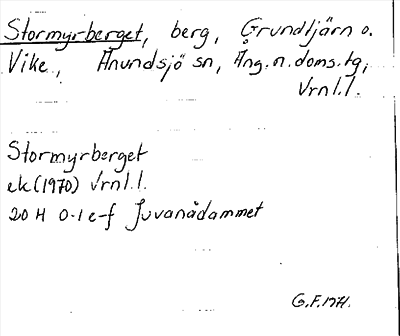 Stormyrberget, berg, Grundtjärn o.
Vike, Anundsjö sn, Ång.n.doms.tg,
Vrnl.l.
Stormyrberget
ek(1970) Vrnl.l.
20 H 0-1 e-f Juvanådammet
G.F.1971.